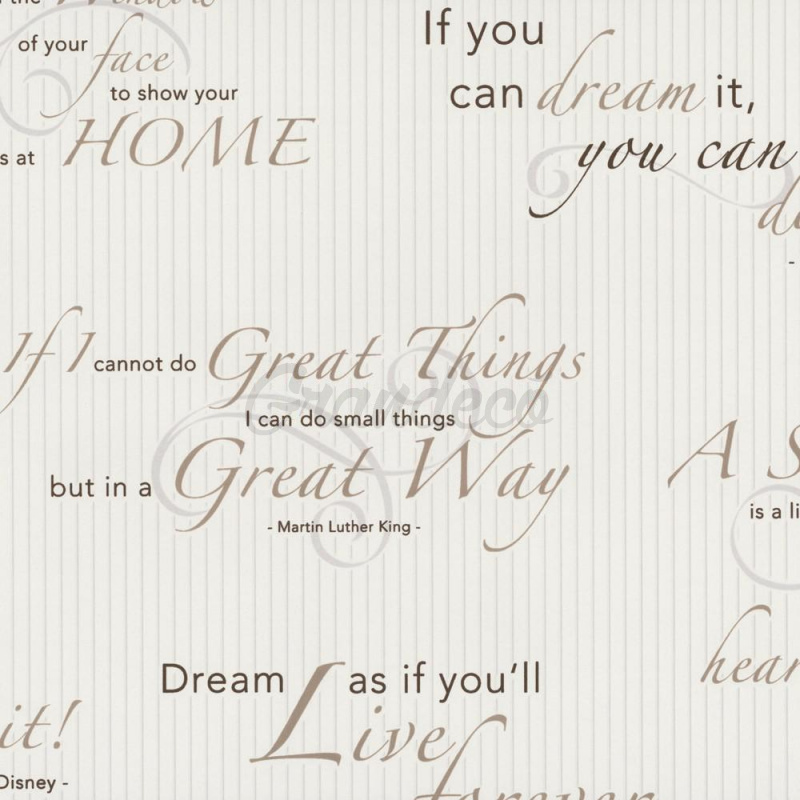 of your face
to show your
s at HOME
If you
can dream it,
you can
-
If I cannot do Great Things
I can do small things
but in a Great Way
- Martin Luther King -
Grandeco
A S
is a li
hear
Dream as if you'll
Live
forever
it!
Disney -